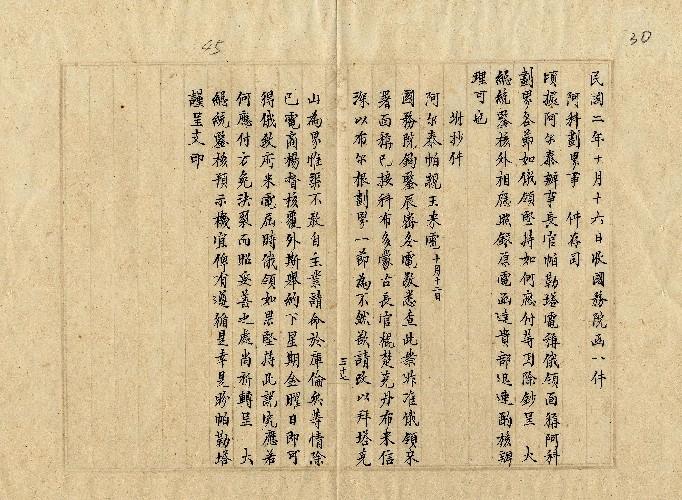 30
45
民国二年十月十六日收國務院函一件
阿科劃界事 件存司
頃據阿尔泰辦事長官帕勒塔電稱俄領面稱阿科
劃界各節如俄領堅持如何應付等因除鈔呈 大
總統鑒核外相應照錄原電函達貴部迅速酌核辦
理可也
附抄件
阿尔泰帕親王來電十月十二日
國務院鈞鑒辰密各電敬悉查此業准俄領來
署面稱已接科布多蒙古長官棍楚克丹布來信
深以布尔根劃界一節為不然兹請改以拜塔克
山為界惟渠不敢自主業請命於庫倫等情除
已電商楊督核覆外斯舉約下星期金曜日即可
得俄政府來電屆時俄領如果堅持此說究應若
何應付方免決裂而昭妥善之處尚祈轉呈 大
總統鑒核預示機宜俾有遵循是幸是盼帕勒塔
謹呈文印